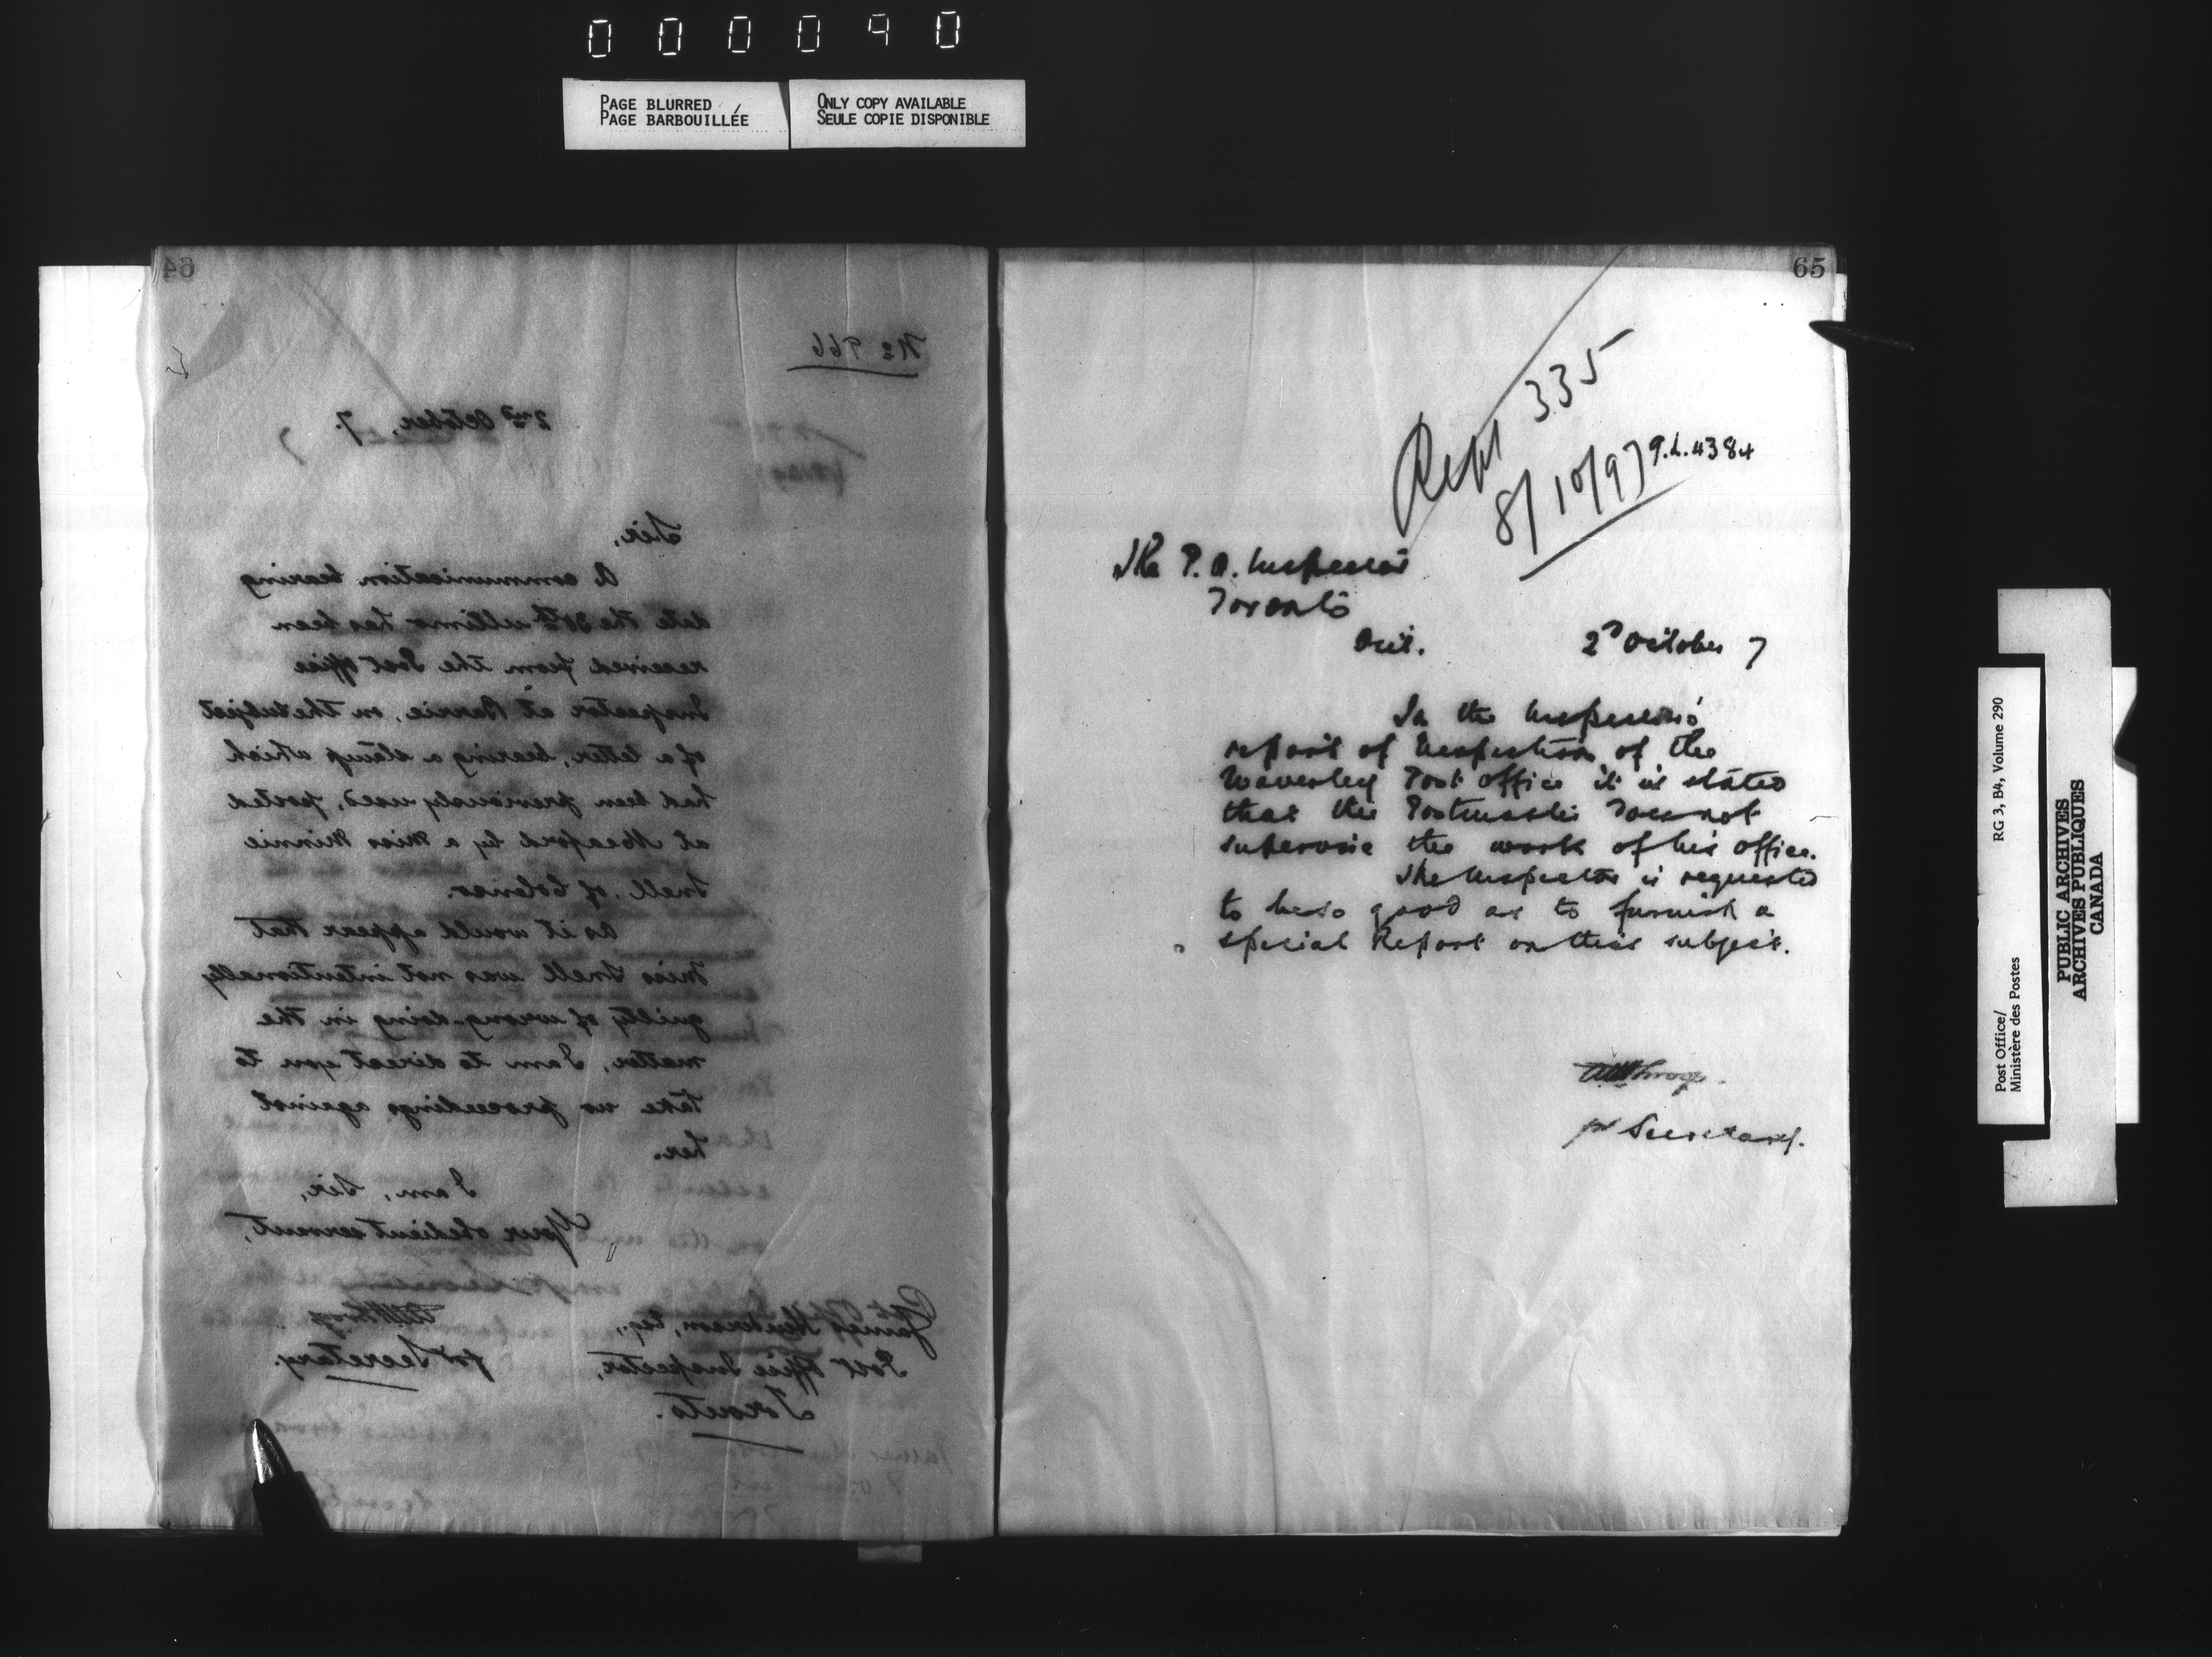 000090
PAGE BLURRED
PAGE BARBOUILLÉE
ONLY COPY AVAILABLE
SEULE COPIE DISPONIBLE
64
No 966
2nd October, 7.
Sir,
A communication bearing
date the 30th ultimo has been
received from the Post Office
Inspector at Barrie, on the subject
of a letter, bearing a stamp which
had been previously used, posted
at Meaford by a Miss Minnie
Snell, of
As it would appear that
Miss Snell was not intentionally
guilty of wrong-doing in the
matter, I am to direct you to
take no proceedings against
her.
I am, Sir,
Your obedient servant,
for Secretary.
James Henderson, Esq.,
Post Office Inspector,
Toronto.
65
Rept 335
8/10/97
The P. O. Inspector
Toronto
Ont.
2d October 7
In the Inspector's
report of Inspection of the
Waverley Post Office it is stated
that the Postmaster does not
supervise the work of his office.
The Inspector is requested
to be so good as to furnish a
special Report on this subject.
for Secretary.
Post Office/
Ministère des Postes
RG 3, B4, Volume 290
PUBLIC ARCHIVES
ARCHIVES PUBLIQUES
CANADA